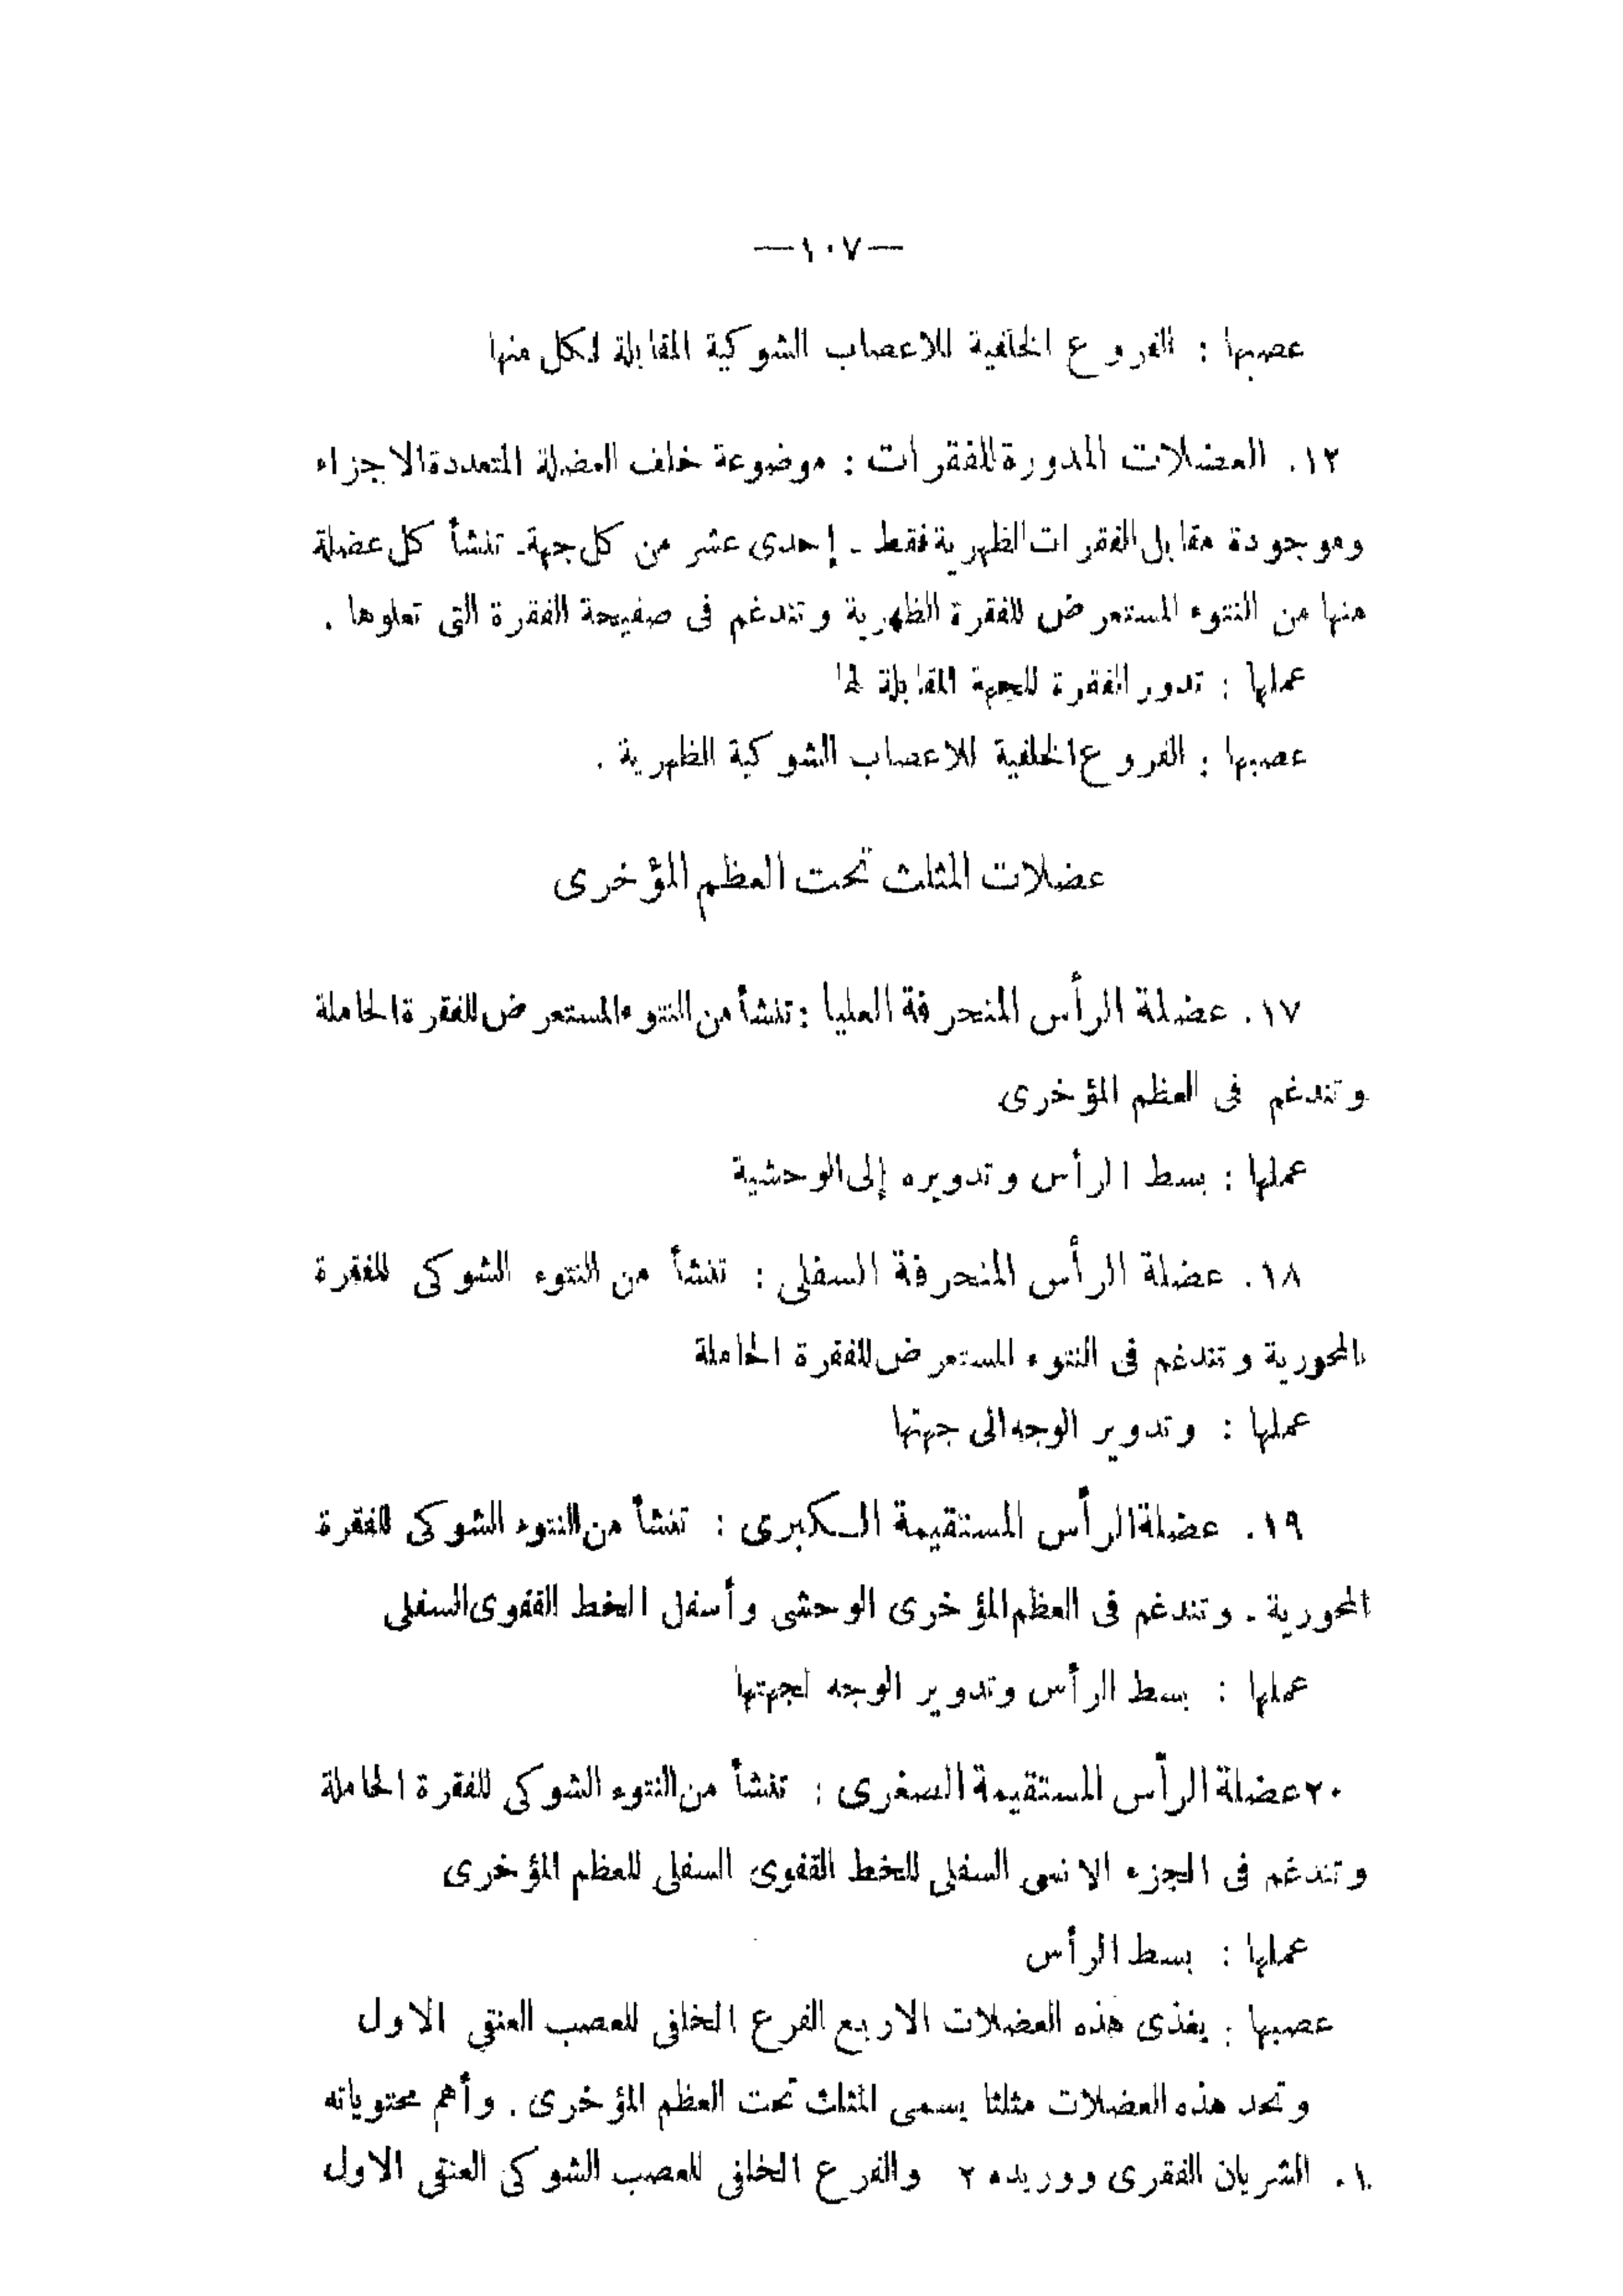 —١٠٧—
عصبها : الفروع الخلفية للاعصاب الشوكية المقابلة لكل منها
١٢. العضلات المدورة للفقرات : موضوعة خلف العضلة المتعددة الاجزاء
وموجودة مقابل الفقرات الظهرية فقط ـ إحدى عشر من كل جهة ـ تنشأ كل عضلة
منها من النتوء المستعرض للفقرة الظهرية وتندغم فى صفيحة الفقرة التى تعلوها .
عملها : تدور الفقرة للجهة المقابلة لها
عصبها : الفروع الخلفية للاعصاب الشوكية الظهرية .
عضلات المثلث تحت العظم المؤخرى
١٧. عضلة الرأس المنحرفة العليا : تنشأ من النتوء المستعرض للفقرة الحاملة
وتندغم فى العظم المؤخرى
عملها : بسط الرأس وتدويره إلى الوحشية
١٨. عضلة الرأس المنحرفة السفلى : تنشأ من النتوء الشوكى للفقرة
المحورية وتندغم فى النتوء المستعرض للفقرة الحاملة
عملها : وتدوير الوجه الى جهتها
١٩. عضلة الرأس المستقيمة الكبرى : تنشأ من النتوء الشوكى للفقرة
المحورية ـ وتندغم فى العظم المؤخرى الوحشى وأسفل الخط القفوى السفلى
عملها : بسط الرأس وتدوير الوجه لجهتها
٢٠ عضلة الرأس المستقيمة الصغرى : تنشأ من النتوء الشوكى للفقرة الحاملة
وتندغم فى الجزء الانسى السفلى للخط القفوى السفلى للعظم المؤخرى
عملها : بسط الرأس
عصبها : يغذى هذه العضلات الاربع الفرع الخلفى للعصب العنقى الاول
وتحد هذه العضلات مثلثا يسمى المثلث تحت العظم المؤخرى . وأهم محتوياته
١. الشريان الفقرى ووريده ٢ والفرع الخلفى للعصب الشوكى العنقى الاول